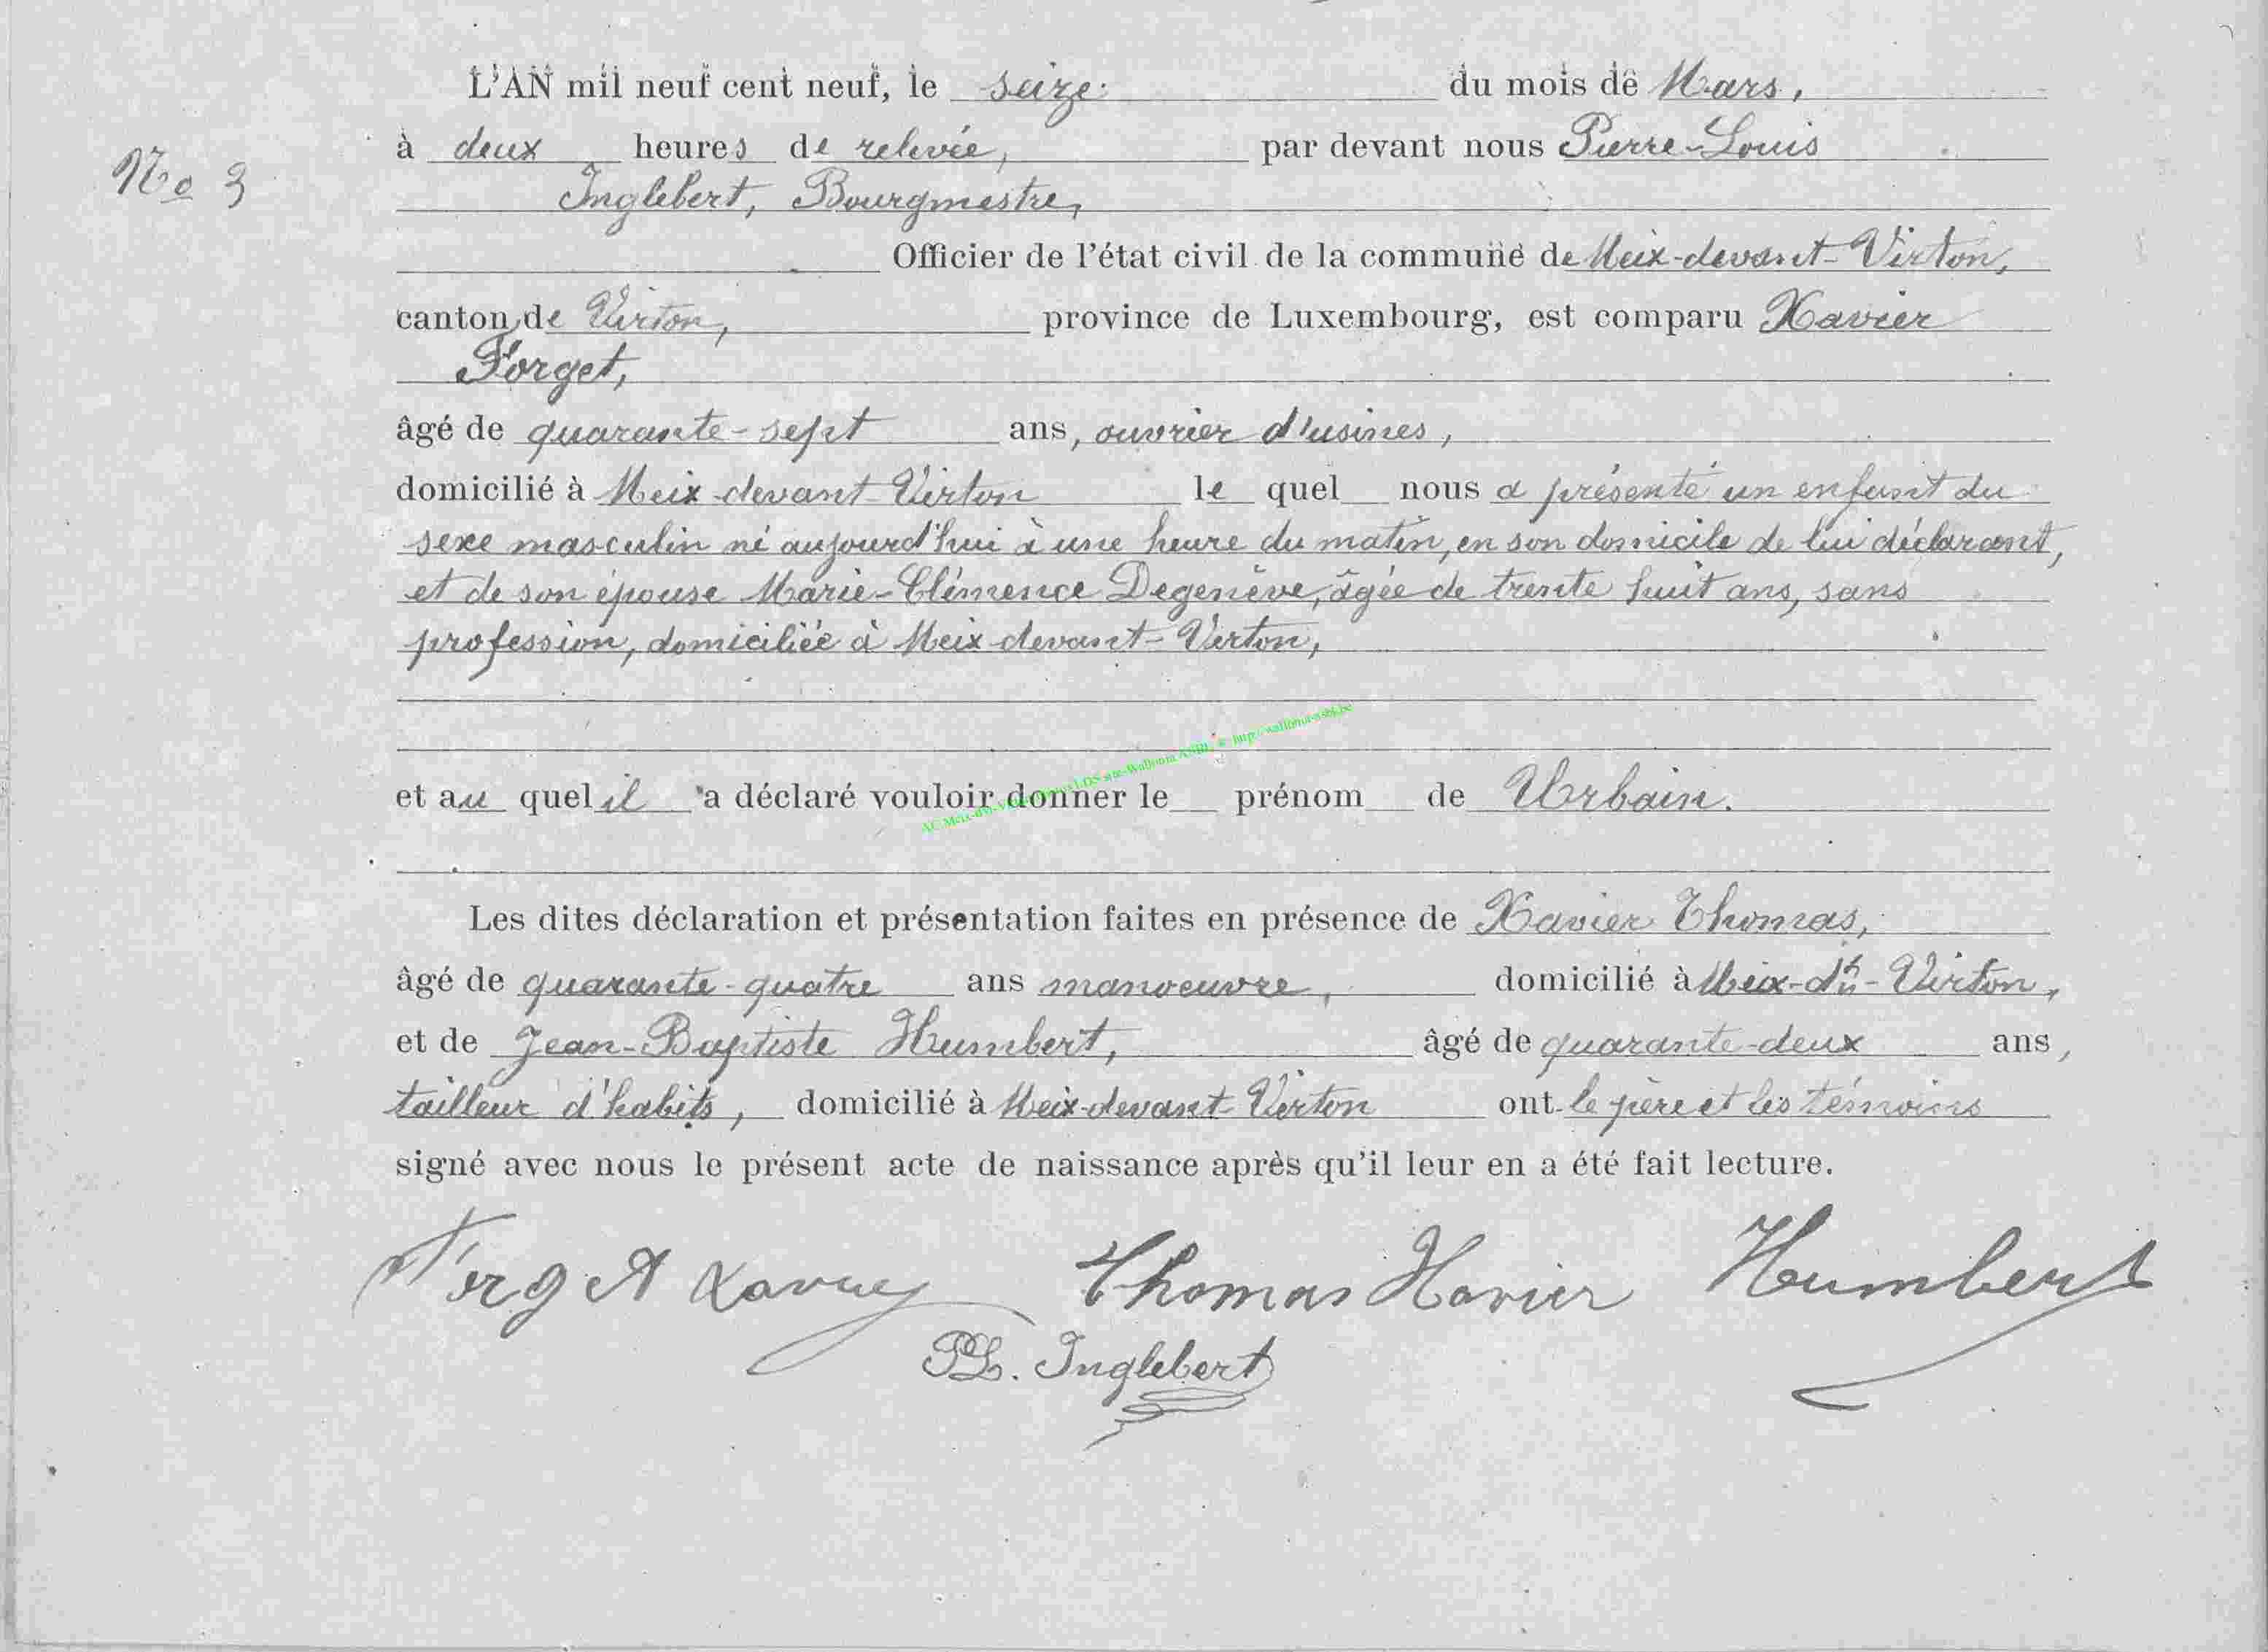 L'AN mil neuf cent neuf, le seize du mois de Mars,
No 3
à deux heures de relevée, par devant nous Pierre-Louis
Inglebert, Bourgmestre,
Officier de l'état civil de la commune de Meix-devant-Virton,
canton de Virton, province de Luxembourg, est comparu Xavier
Forget,
âgé de quarante-sept ans, ouvrier d'usines,
domicilié à Meix-devant-Virton le quel nous a présenté un enfant du
sexe masculin né aujourd'hui à une heure du matin, en son domicile de lui déclarant,
et de son épouse Marie-Clémence Degenève, âgée de trente huit ans, sans
profession, domiciliée à Meix-devant-Virton,
et au quel il a déclaré vouloir donner le prénom de Urbain.
Les dites déclaration et présentation faites en présence de Xavier Thomas,
âgé de quarante-quatre ans manoeuvre, domicilié à Meix-dt-Virton,
et de Jean-Baptiste Humbert, âgé de quarante-deux ans,
tailleur d'habits, domicilié à Meix-devant-Virton ont le père et les témoins
signé avec nous le présent acte de naissance après qu'il leur en a été fait lecture.
Forget Xavier Thomas Xavier Humbert
PL. Inglebert